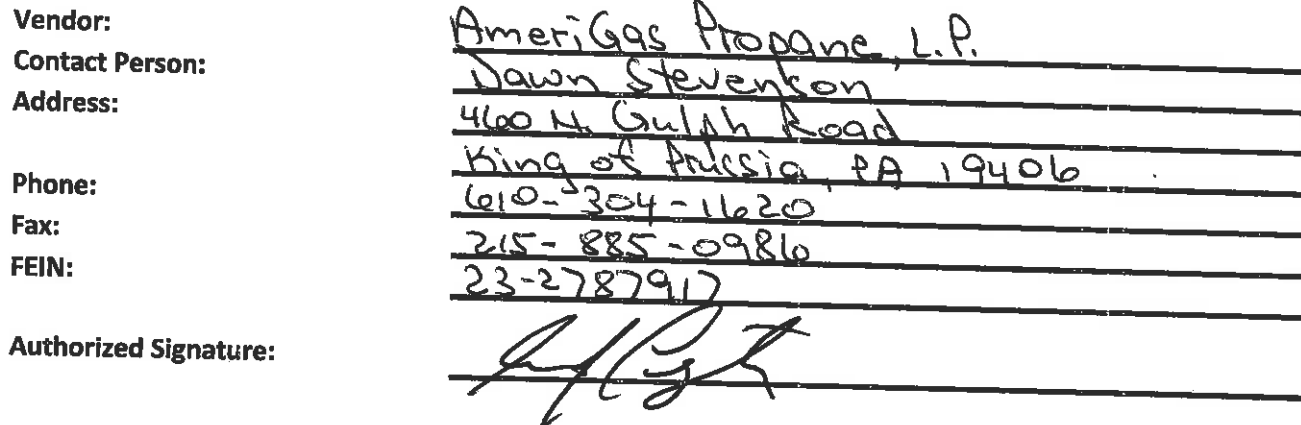 Vendor: AmeriGas Propane, L.P.
Contact Person: Dawn Stevenson
Address: 460 N. Gulph Road
King of Prussia, PA 19406
Phone: 610-304-1620
Fax: 215-885-0986
FEIN: 23-2787917
Authorized Signature: